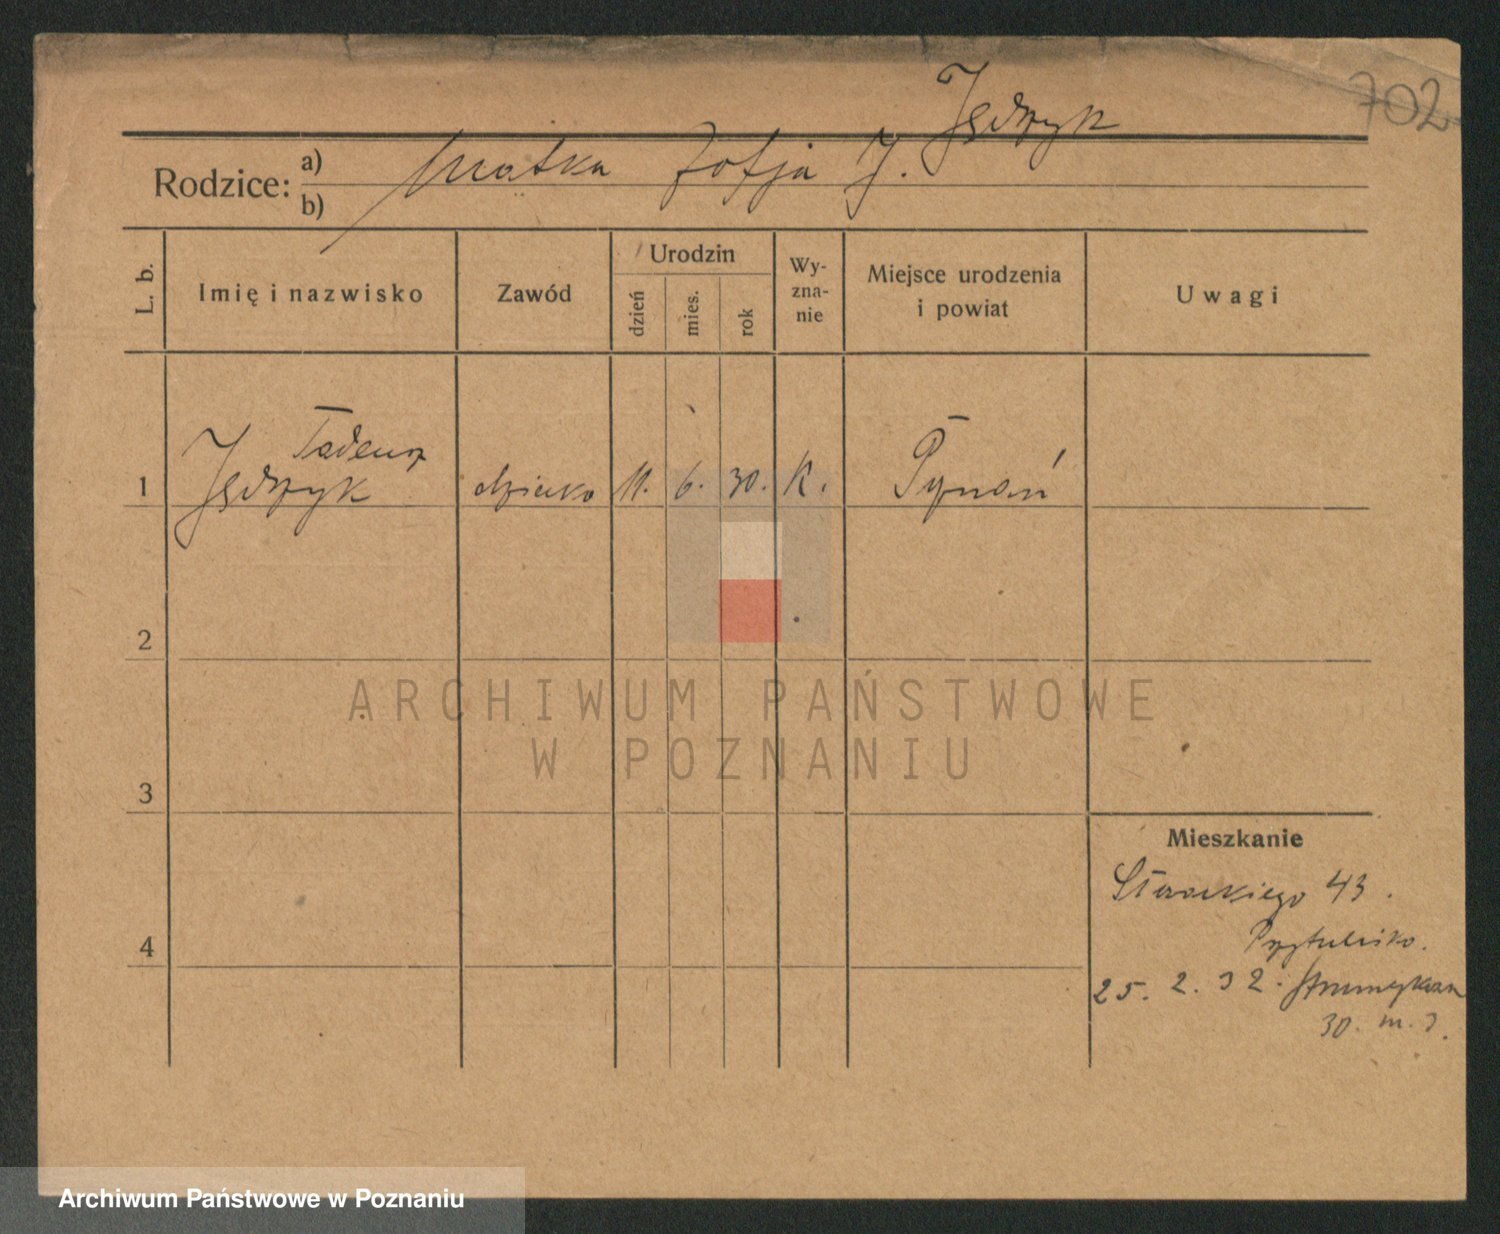 702
Jędrzyk
Rodzice: a) Matka Zofja J.
b)
L. b. Imię i nazwisko Zawód Urodzin dzień mies. rok Wy-zna-nie Miejsce urodzenia i powiat Uwagi
Tadeusz
1 Jędrzyk dziecko 11. 6. 30. K. Poznań
2
ARCHIWUM PAŃSTWOWE
W POZNANIU
3
Mieszkanie
43.
4 Przytulisko.
25. 2. 32.
30. m. 3.
Archiwum Państwowe w Poznaniu